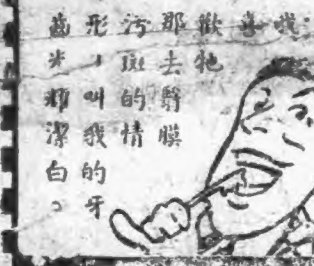 我:
喜
歡牠
那去翳膜
污斑的情
形,叫我的牙
齒光輝潔白。